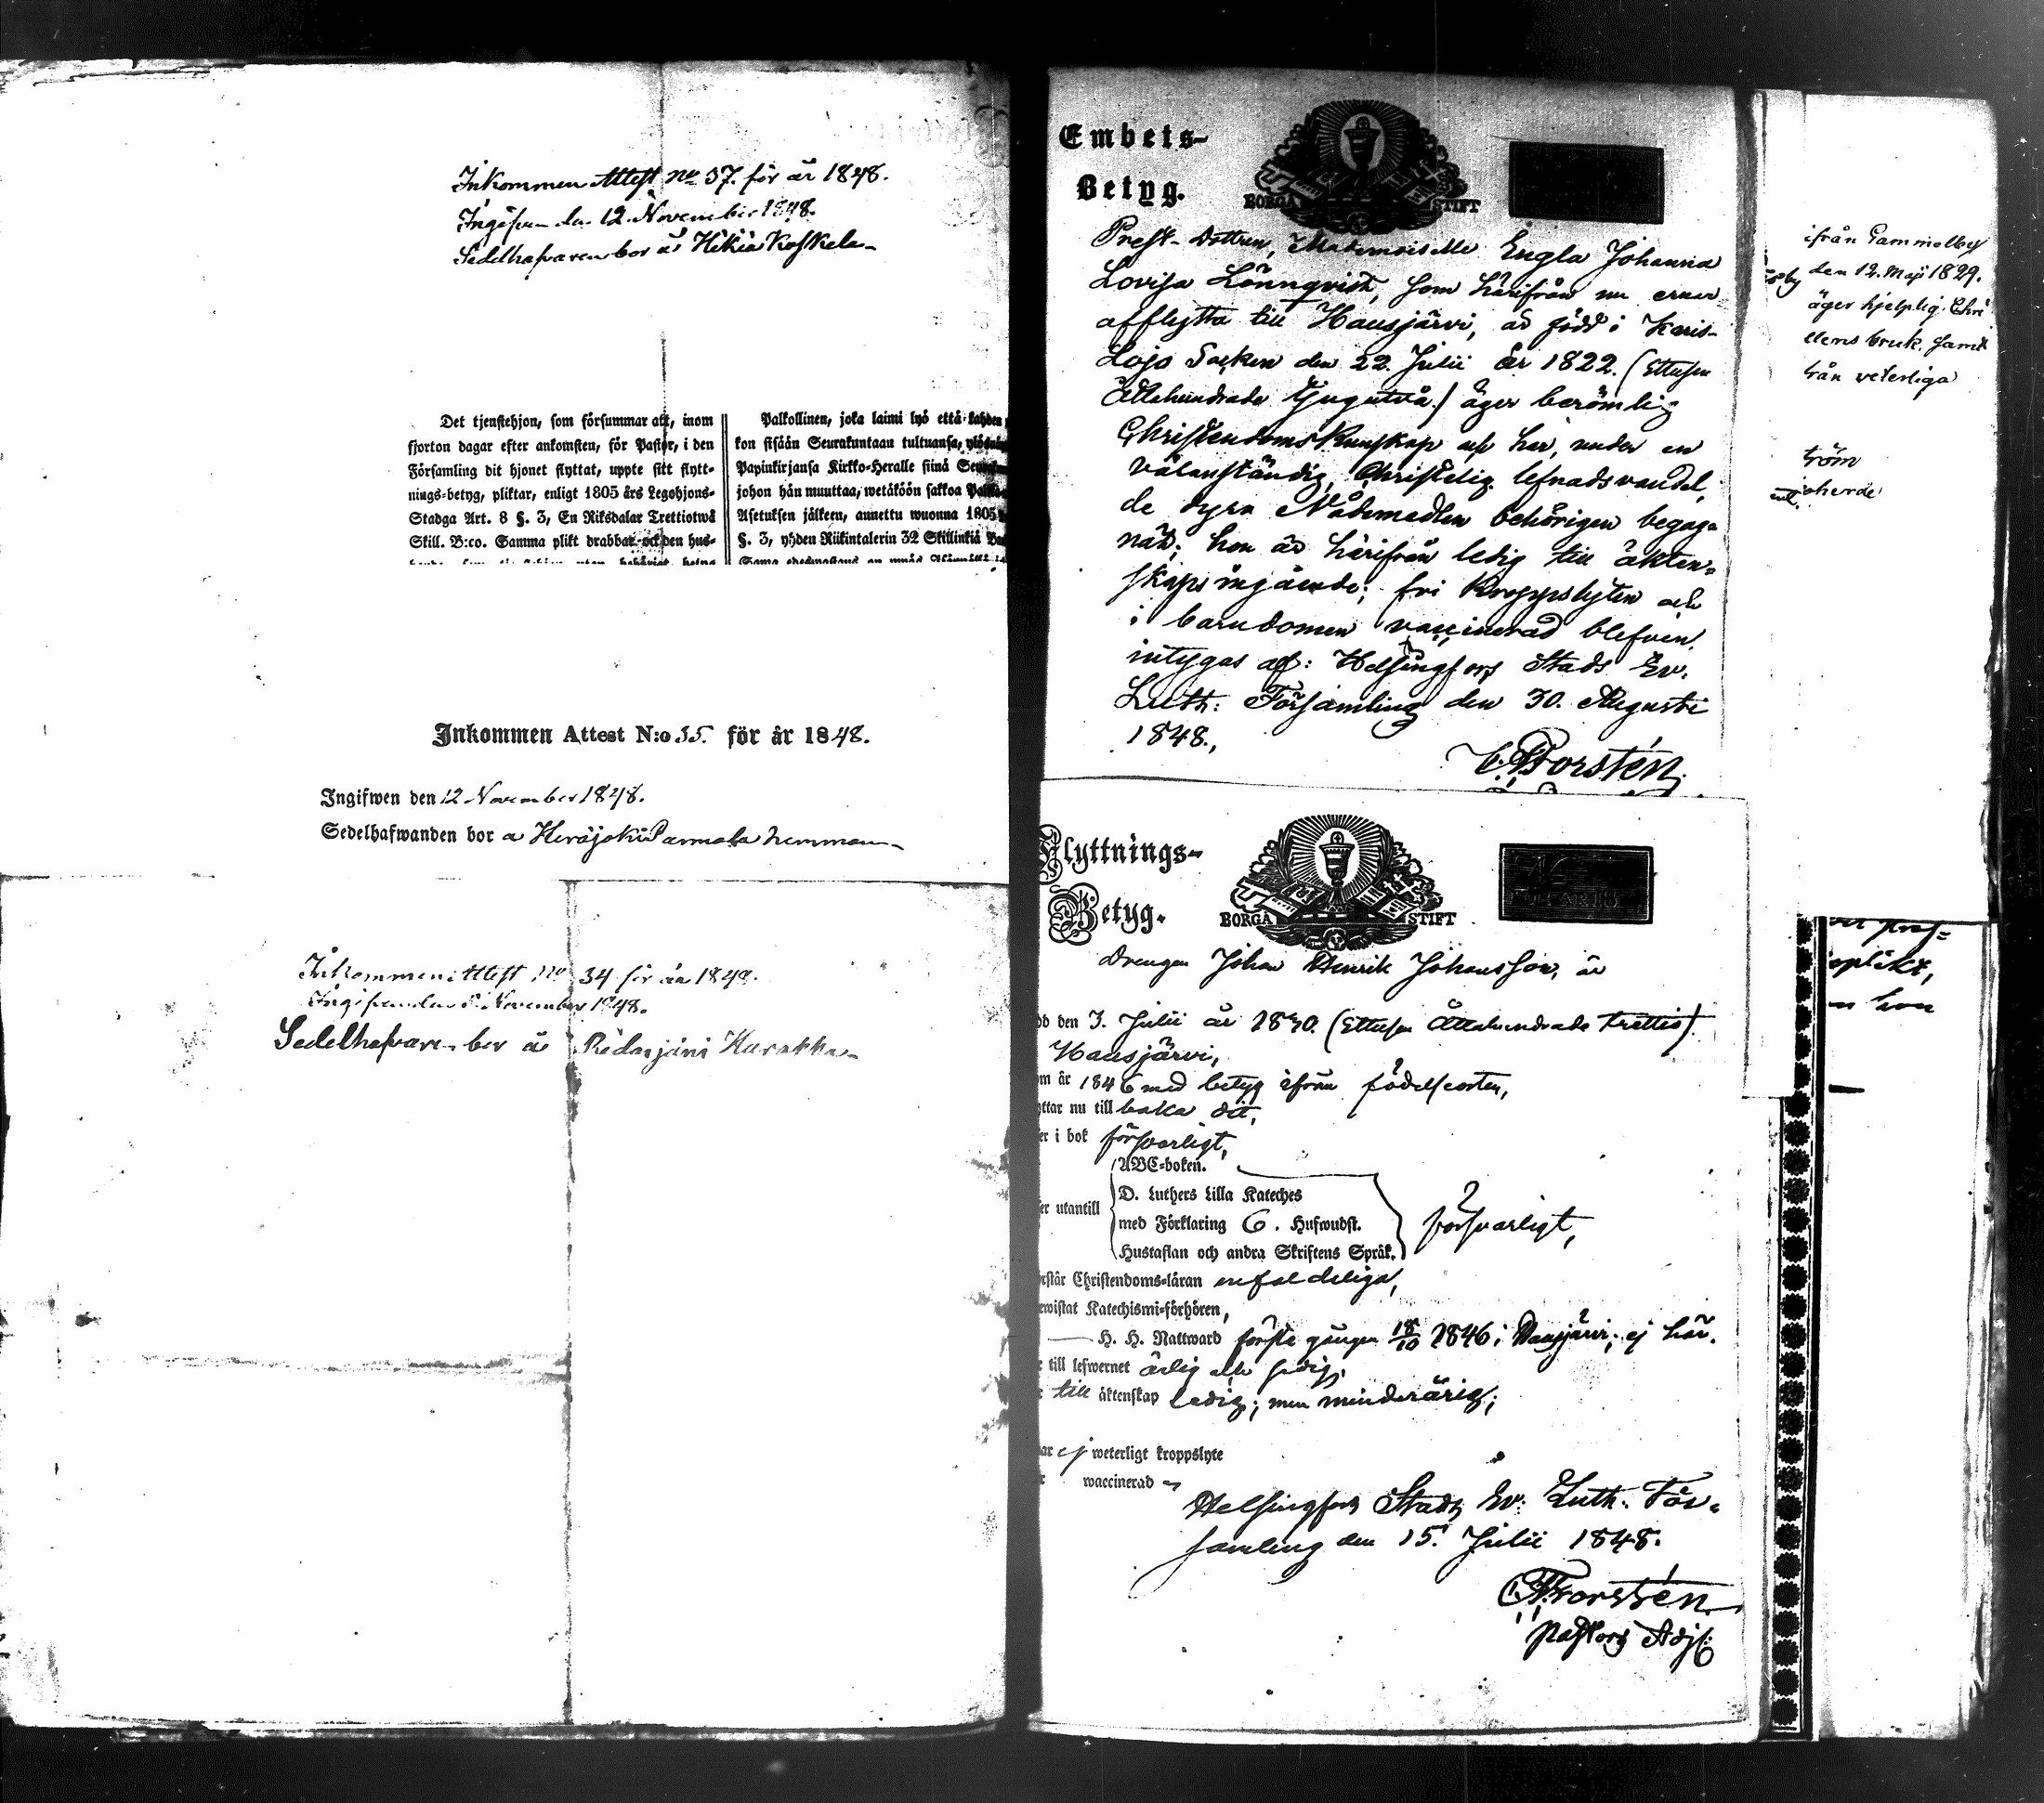 Inkommen Attest no 37. för år 1848.
Ingifven den 12 November 1848.
Sedelhafvaren bor å Hikiä Koskela
Det tjenstehjon, som försummar att, inom
fjorton dagar efter ankomsten, för Pastor, i den
Församling dit hjonet flyttat, uppte sitt flytt-
nings-betyg, pliktar, enligt 1805 års Legohjons-
Stadga Art. 8 §. 3, En Riksdalar Trettiotwå
Skill. B:co. Samma plikt drabbar ock den hus-
Palkollinen, joka laimi lyö että kahden
kon sisään Seurakuntaan tultuansa,
Papinkirjansa Kirkko-Heralle siinä
johon hän muuttaa, wetäköön sakkoa
Asetuksen jälkeen, annettu wuonna 1805
§. 3, yhden Riikintalerin 32 Skillinkiä
Inkommen Attest N:o 35. för år 1848.
Ingifwen den 12 November 1848.
Sedelhafwanden bor å Heräjoki Parmala hemman
Inkommen Attest no 34 för år 1848.
Ingifven den November 1848.
Sedelhafvaren bor å Ridasjärvi Karakka
Embets-
Betyg.
BORGÅ STIFT
Prest-Dottren, Mademoiselle Engla Johanna
Lovisa Lönnqvist, som härifrån nu ernar
afflytta till Hausjärvi, är född i Karis-
Lojo Socken den 22. Julii år 1822. (Ettusen
Åttahundrade Tjugutvå.) äger berömlig
Christendoms Kunskap och har, under en
välanständig, Christelig lefnadsvandel,
de dyra Nådemedlen behörigen begag-
nat; hon är härifrån ledig till äkten-
skaps ingående; fri Kroppslyten och
i barndomen vaccinerad blefven,
intygas af: Helsingfors Stads Ev.
Luth: Församling den 30. Augusti
1848.,
C. Forstén.
Flyttnings-
Betyg.
BORGÅ STIFT
Drengen Johan Henrik Johansson, är
den 3. Julii år 1830. (Ettusen Åttahundrade trettio).
Hausjärvi,
år 1846 med betyg ifrån födelseorten,
nu till baka dit,
i bok försvarligt,
ABC-boken.
D. Luthers Lilla Kateches
utantill
med Förklaring 6. Hufwudst.
försvarligt,
Hustaflan och andra Skriftens Språk.
Christendoms-läran enfaldeliga,
Katechismi-förhören,
H. H. Nattward förste gången 18/10 1846 i Hausjärvi; ej här.
till lefwernet ärlig och sedig,
till äktenskap Ledig; men minderårig;
ej weterligt kroppslyte
waccinerad
Helsingfors Stads Ev: Luth: För-
samling den 15. Julii 1848.
C. Forstén
Pastors Adj:
ifrån Gammelby
den 12. Maji 1829.
äger hjelplig Chri
dens bruk. samt
från veterliga
tröm
oherde
oplikt,
hon